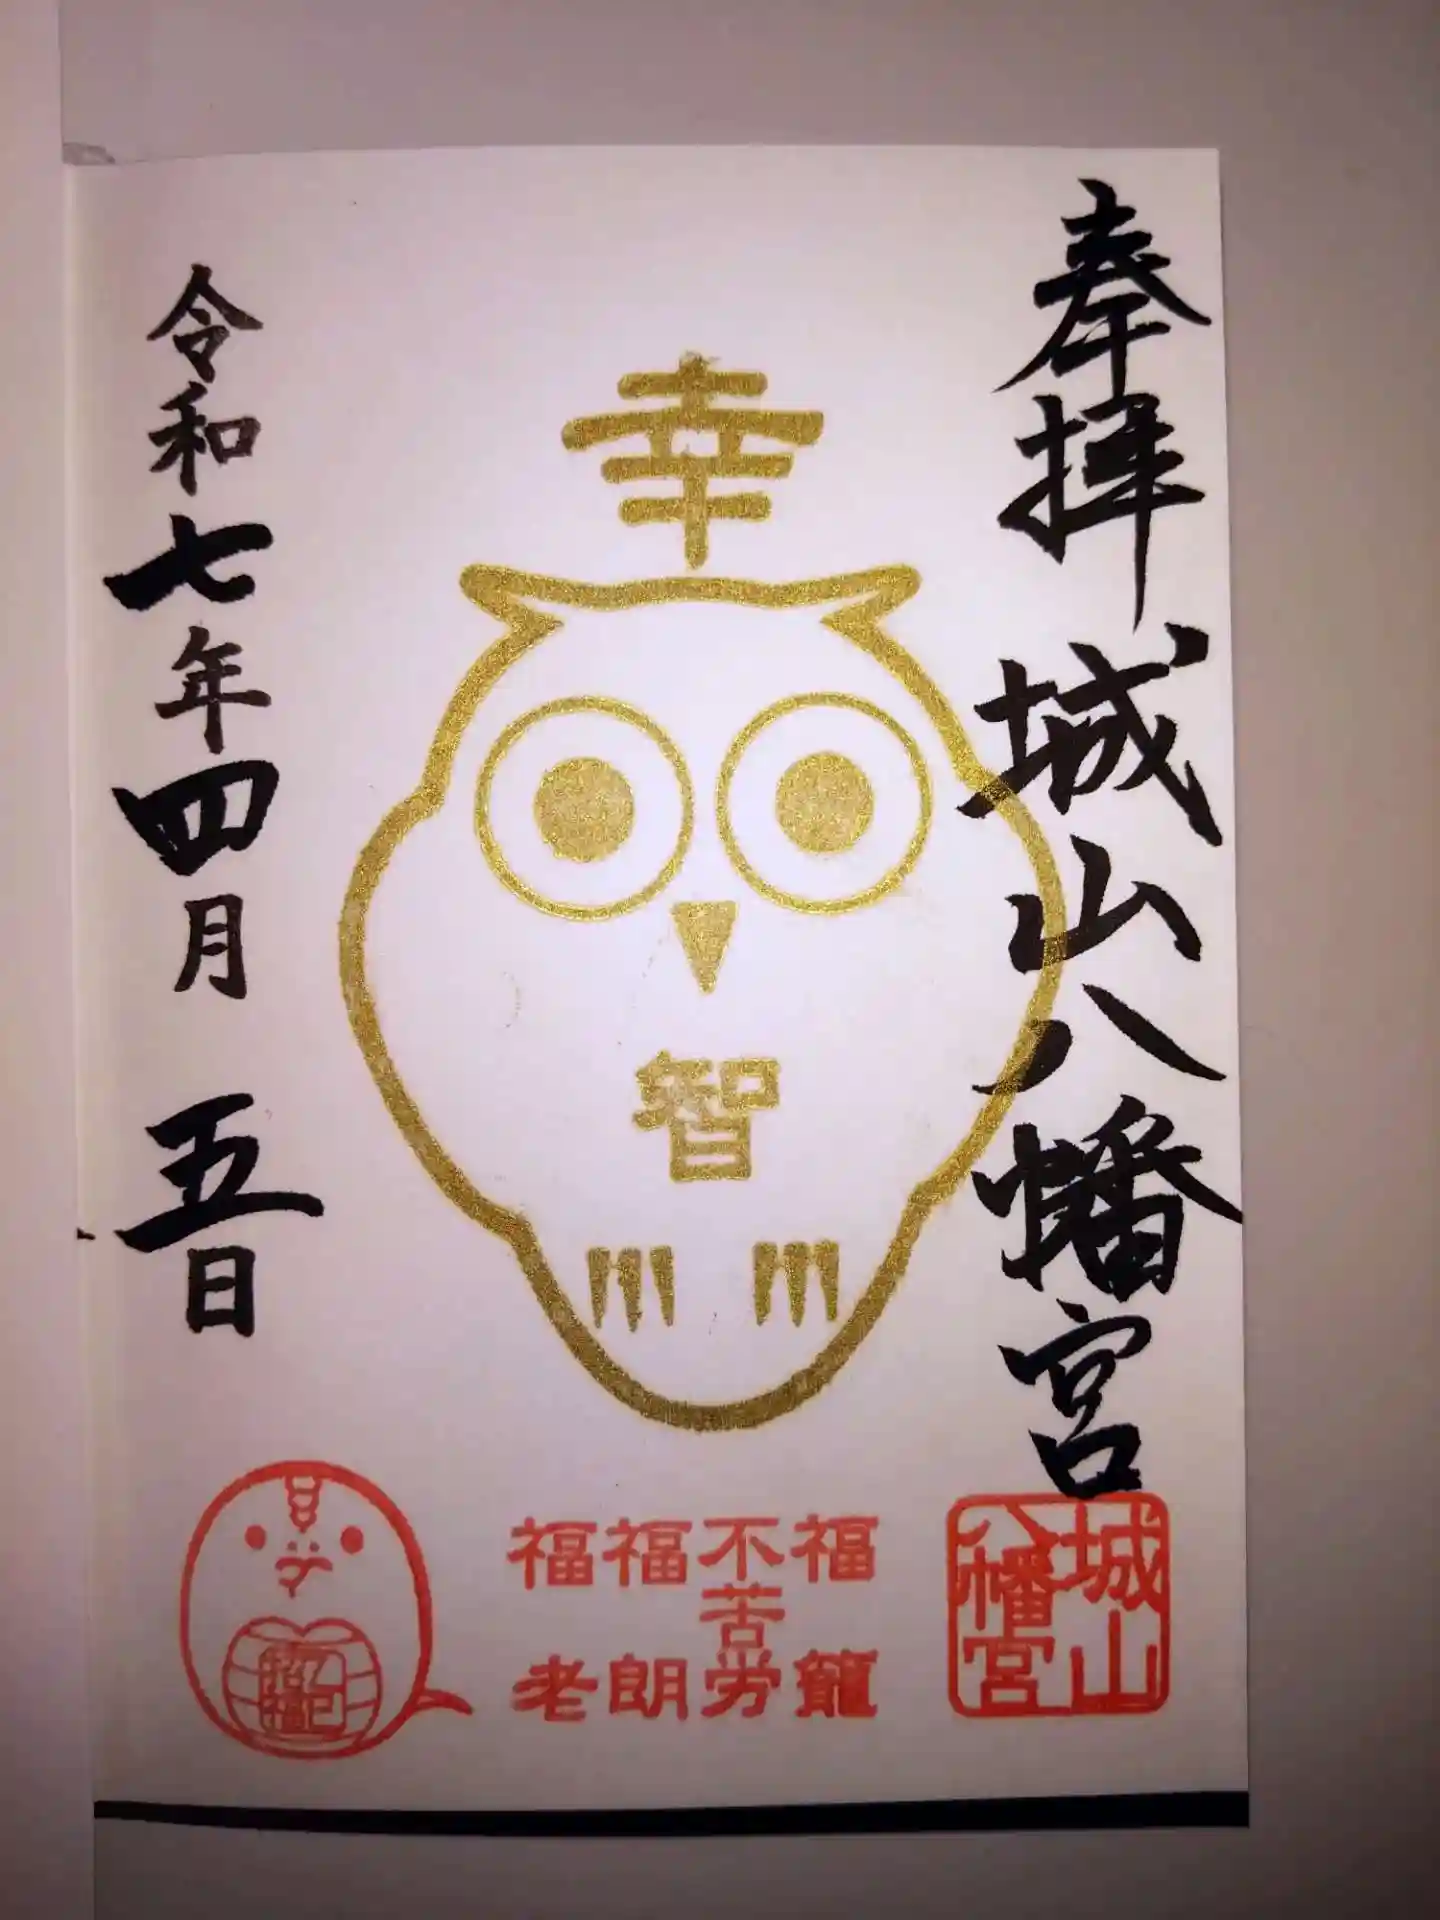 奉拝
城山八幡宮
幸
智
令和七年四月 五日
城山
八幡宮
福籠
不苦労
福朗
福老